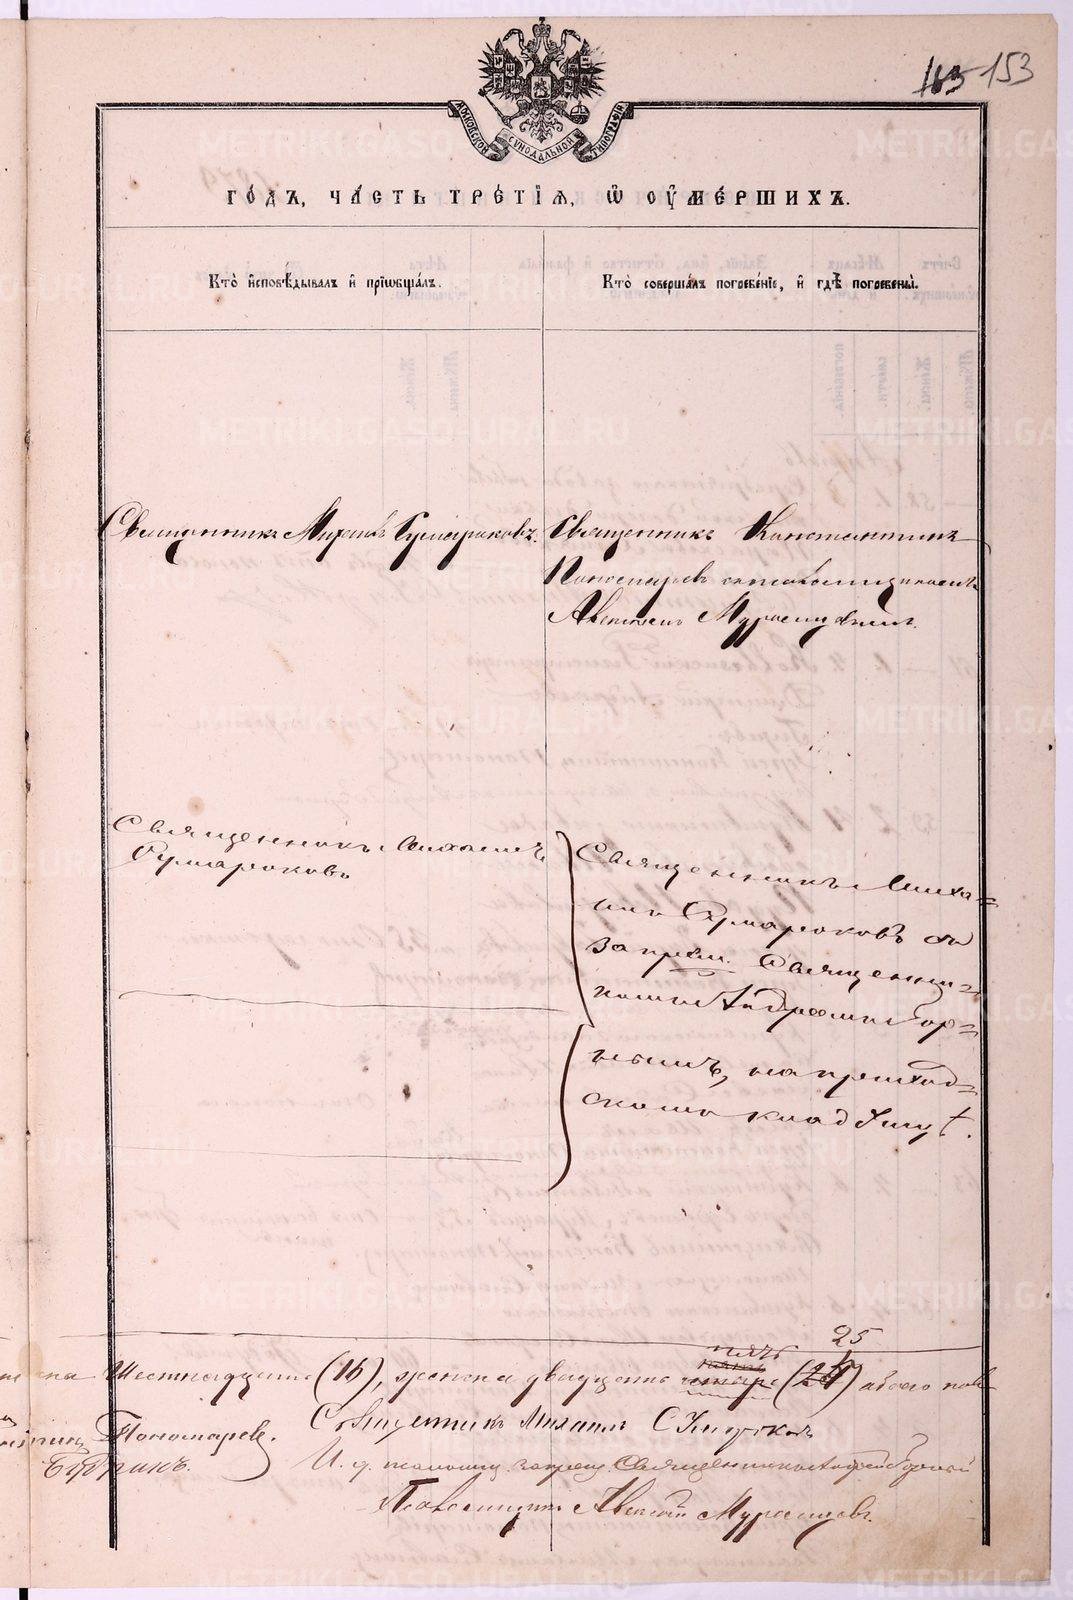 163 153
МОСКОВСКОЙ СѴНОДАЛЬНОЙ ТИПОГРАФІИ
ГОДЪ, ЧАСТЬ ТРЕТІЯ, Ѿ ОУМЕРШИХЪ.
Кто исповѣдывалъ и приобщалъ.
Кто совершалъ погребеніе, и гдѣ погребены.
Священникъ Михаилъ Сумароковъ.
Священникъ Константинъ
Пономаревъ съ псаломщикомъ
Мурашовымъ.
Священникъ Михаилъ
Сумароковъ
Священникъ Миха=
илъ Сумароковъ съ
запрещ. Священни=
комъ Андреемъ Бор=
нымъ, на приход=
скомъ кладбищѣ.
25
пять
на Шестнадцать (16), женска двадцать четыре (24) обоего пола
Пономаревъ. Священникъ Михаилъ Сумароковъ
И. д. псаломщ. запрещ. Священникъ Андрей Борный
Псаломщикъ Мурашовъ.
METRIKI.GASO-URAL.RU